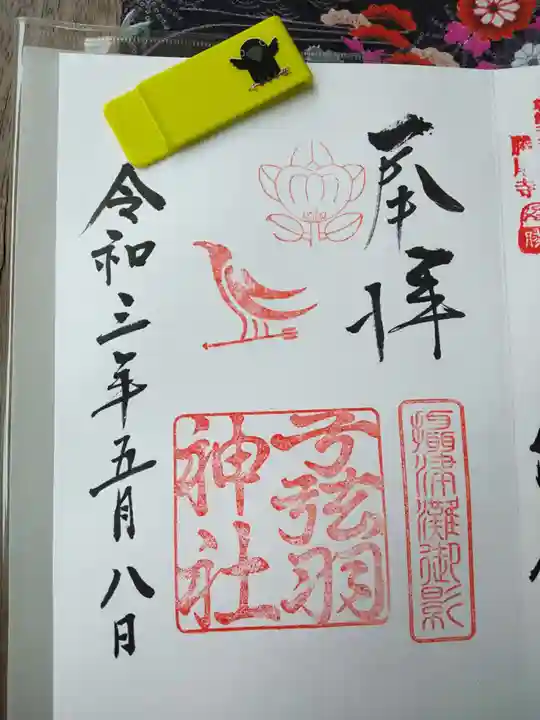 奉拝
攝津灘御影
弓弦羽
神社
令和三年五月八日